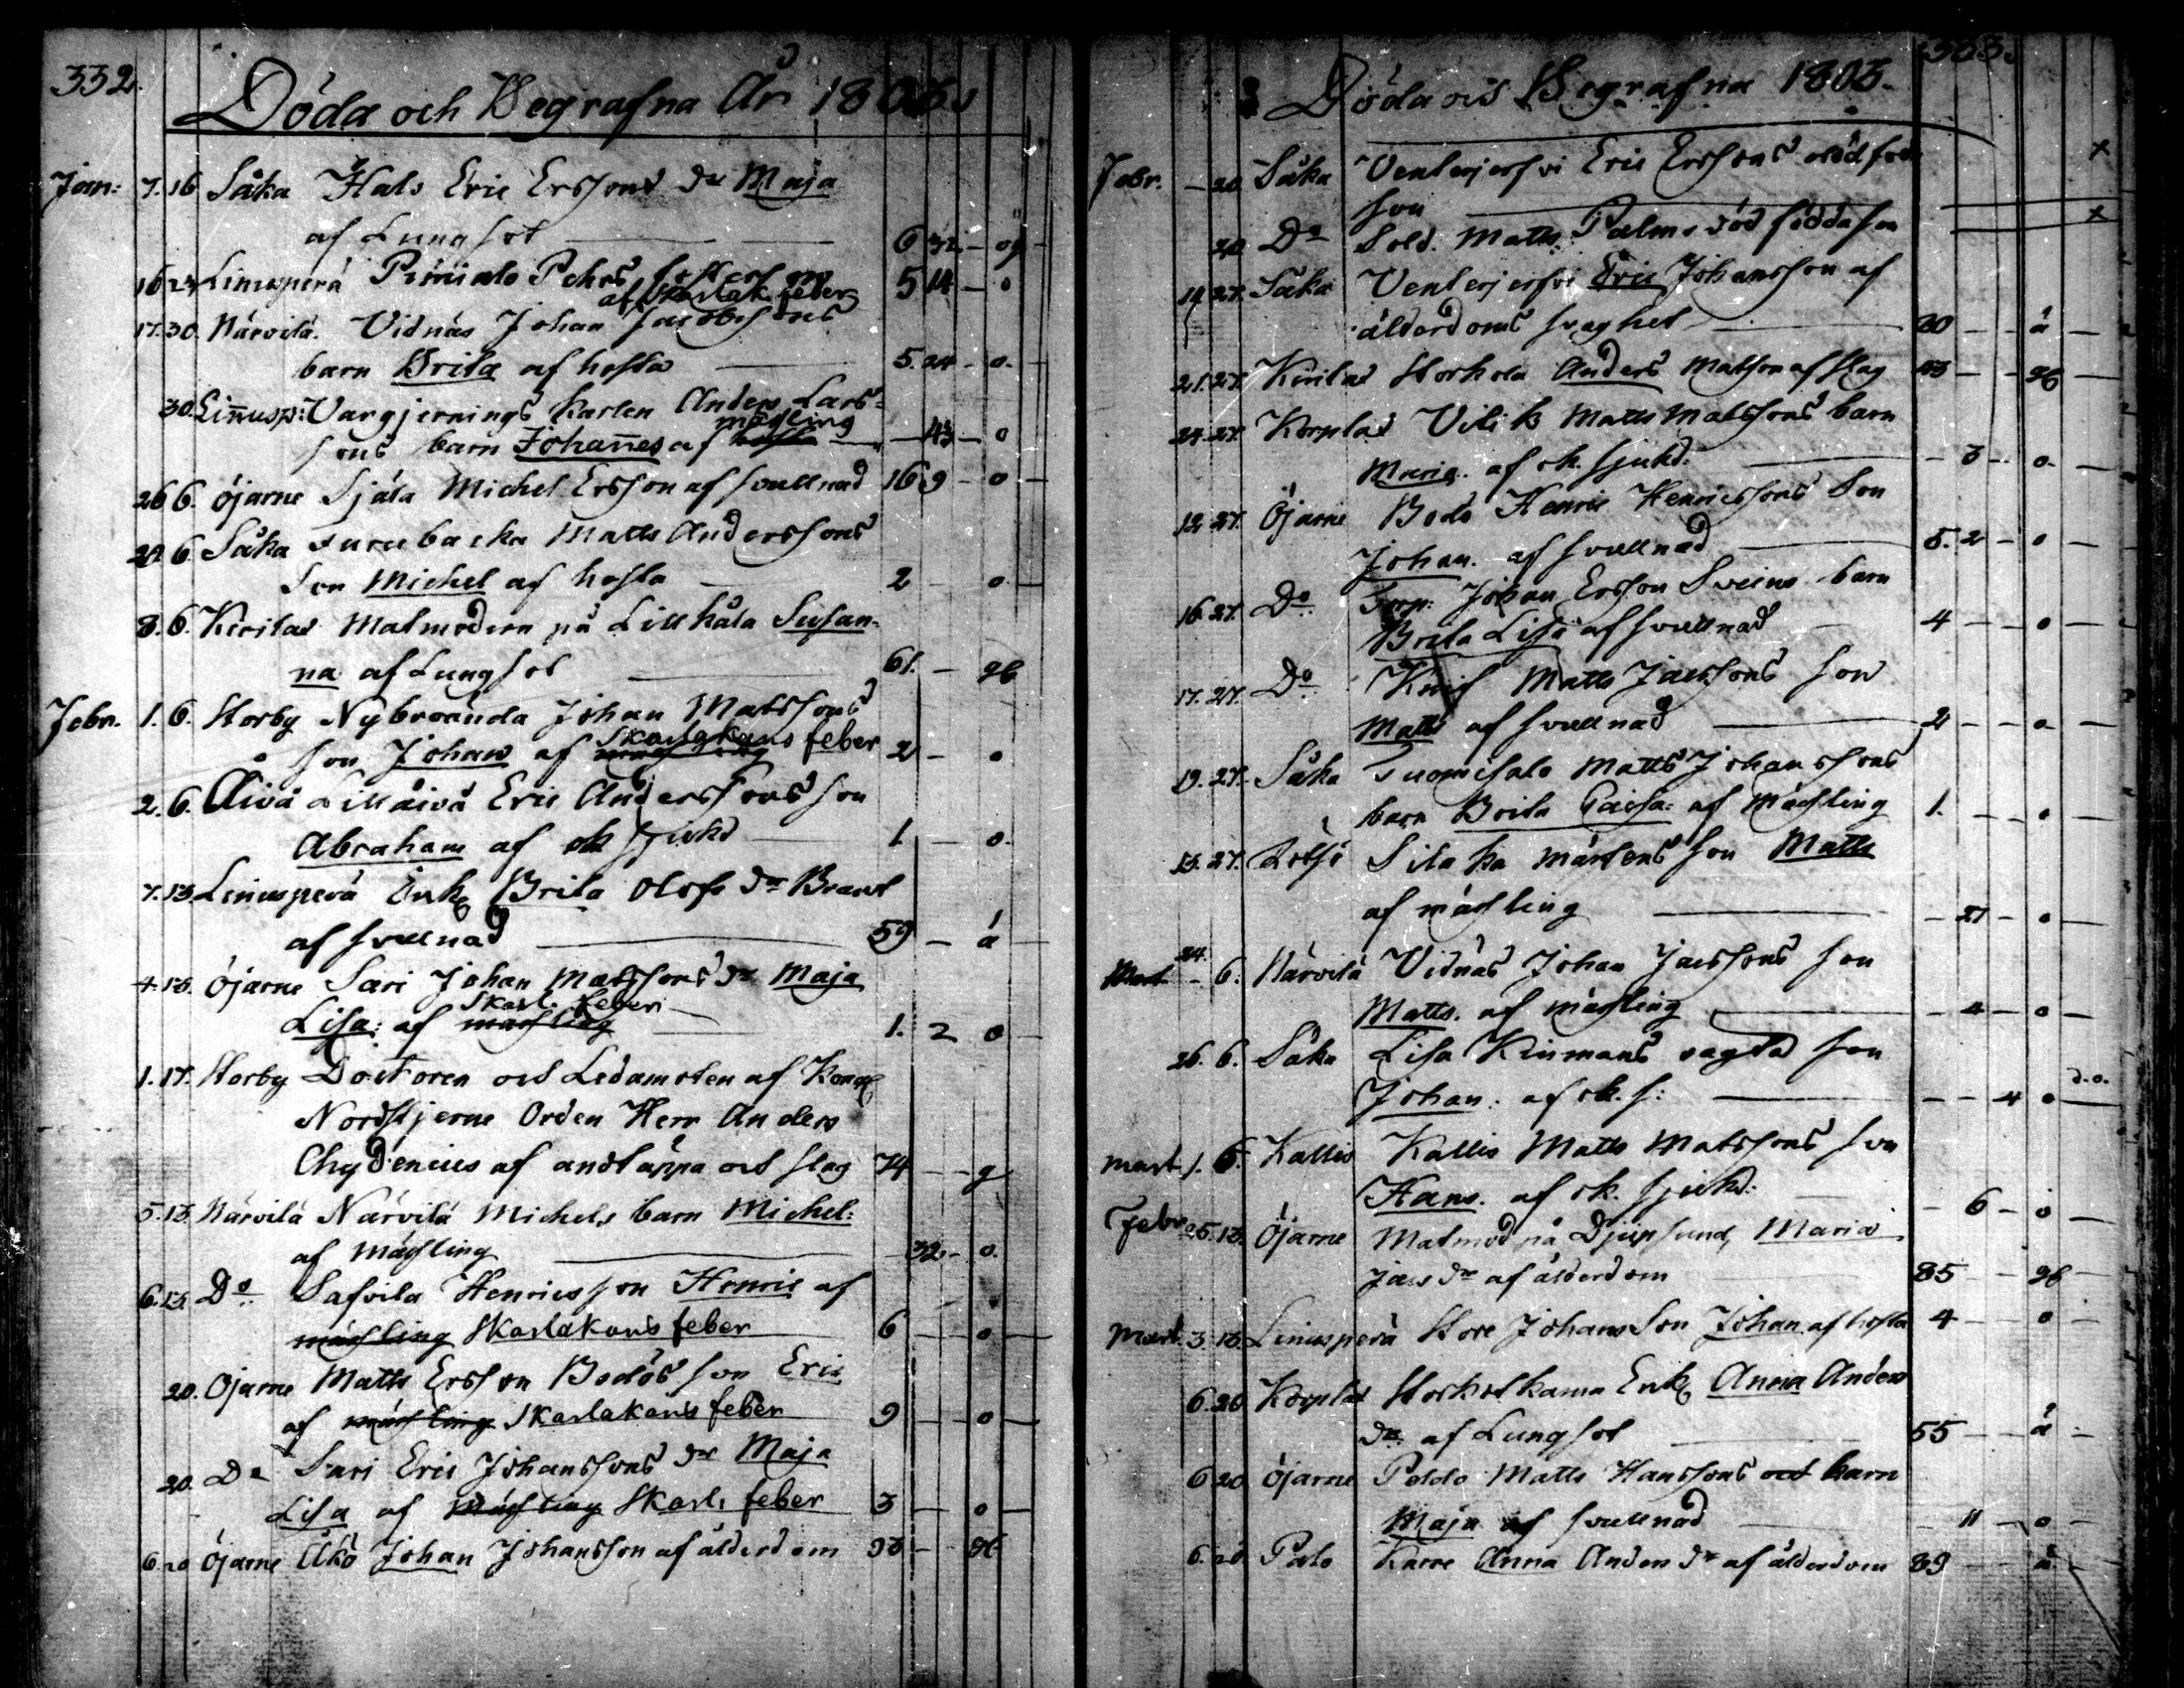 332.
Döda och Begrafna År 1803.
Jan: 7. 16 Såka Hals Eric Erssons dr Maja
af Lungsot 6 32 – og –
16 23 Linusperä Pimialo Pehrs
af Skarlak. feber 5 14 – o
17. 30. Närvilä. Vidnäs Johan Jacobssons
barn Brita af hosta 5. 24 – o.
30. Linusp: Vargjernings Karlen Anders Lars-
sons barn Johannes af mäsling – 43 – o
26 6. Öjarne Själa Michel Ersson af svullnad 16 9 – o –
29. 6 Såka Furubacka Matts Anderssons
Son Michel af hosta 2 – o
3. 6. Kirilax Matmodern på Lillhåla Susan-
na af Lungsot 61. – gb
Febr. 1. 6. Storby Nybroända Johan Matssons
son Johan af Skarlakans feber 2 – o
2. 6. Åivå Lillåivå Eric Anderssons son
Abraham af ok sjukd 1 – o.
7. 13. Linusperä Enk Brita Olofs dr Brant
af svullnad 59 – ä
4. 13. Öjarne Sari Johan Matssons dr Maja
Skarl. feber
Lisa: af mäsling 1. 2 o
1. 17. Storby Doctoren och Ledamoten af Kong
Nordstjerne Orden Herr Anders
Chydenius af andtäppa och slag 74 – g
5. 13. Närvilä Närvilä Michels barn Michel:
af mäsling – 32 – o.
6. 13. Do Safvila Henricsson Henric af
mäsling Skarlakans feber 6 – o –
20. Öjarne Matts Ersson Bodös son Eric
af mäsling Skarlakans feber 9 – o –
20. Do Sari Eric Johanssons dr Maja
Lisa af mäsling Skarl. feber 3 – o –
6. 20 Öjarne Åkö Johan Johansson af ålderdom
333.
Döda och Begrafna 1803.
Febr. – 20. Såka Ventusjerfvi Eric Erssons dödföd. x
son
20 Do Sold. Matts Palms död födda son x
19 27. Såka Ventusjerfvi Eric Johansson af
ålderdoms svaghet 80 – ä –
21. 27. Kirilax Storhola Anders Matsson af slag 53 – gb –
24. 27. Korplax Vitik Matts Matssons barn
Maria. af ok. sjukd: – 3 – o. –
12. 27. Öjarne Bodö Henric Henricssons Son
Johan. af svullnad 5. 2 – o –
16. 27. Do Torp. Johan Ersson Sveins barn
Brita Lisa af svullnad 4 – o –
17. 27. Do Knif Matts Jacssons son
Matts af svullnad 2 – o –
19. 27. Såka Tuomisalo Matts Johanssons
barn Brita Caisa: af Mäsling 1. – o –
13. 27. Rötsö Silaka Mårtens son Matts
af mäsling – 21 – o –
24.
Mart – 6. Närvilä Vidnäs Johan Jacssons son
Matts. af mäsling – 4 – o –
26. 6. Såka Lisa Kinmans oägta son
Johan: af ok. s: – – 4 o d.o.
Mart. 1. 6. Kallis Kallis Matts Matssons son
Hans. af ok. sjukd: – 6 – o –
Febr. 25. 13. Öjarne Matmod på Djupsund, Maria
Jacs dr af ålderdom 85 – gb –
Mart. 3. 13. Linusperä Store Johans Son Johan af hosta 4 – o –
6. 20 Korplax Storkotkama Enk Anna Anders
dr. af Lungsot 55 – ä –
6 20 Öjarne Poldo Matts Hanssons barn
Maja af svullnad – 11 – o –
6. 20 Palo Karre Anna Anders dr af ålderdom 89 – ä